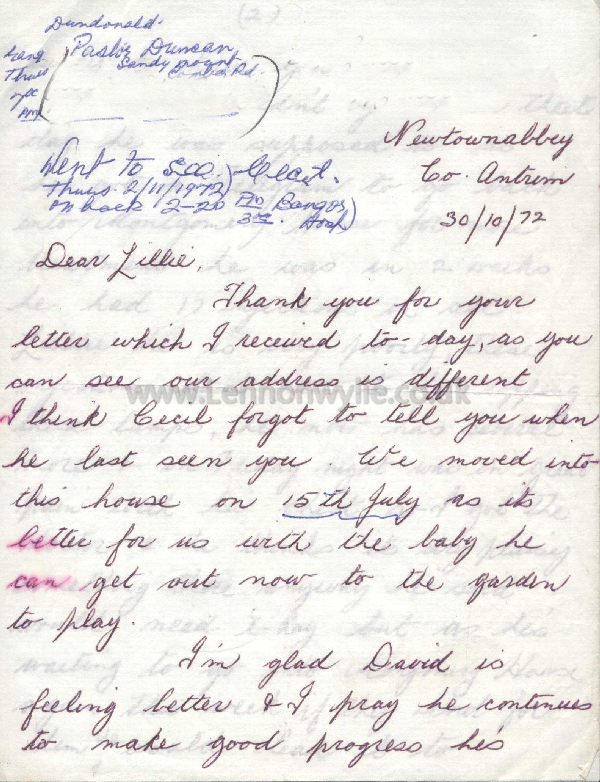 Dundonald.
Pastor Duncan
Sandy mount
Rd.
Thurs
Went to see Cecil.
Thurs. 2/11/1972
on back 2-20
Newtownabbey
Co. Antrim
30/10/72
Dear Lillie,
Thank you for your
letter which I received to-day, as you
can see our address is different
www.Lennonwylie.co.uk
I think Cecil forgot to tell you when
he last seen you. We moved into
this house on 15th July as its
better for us with the baby he
can get out now to the garden
to play.
I'm glad David is
feeling better & I pray he continues
to make good progress he's